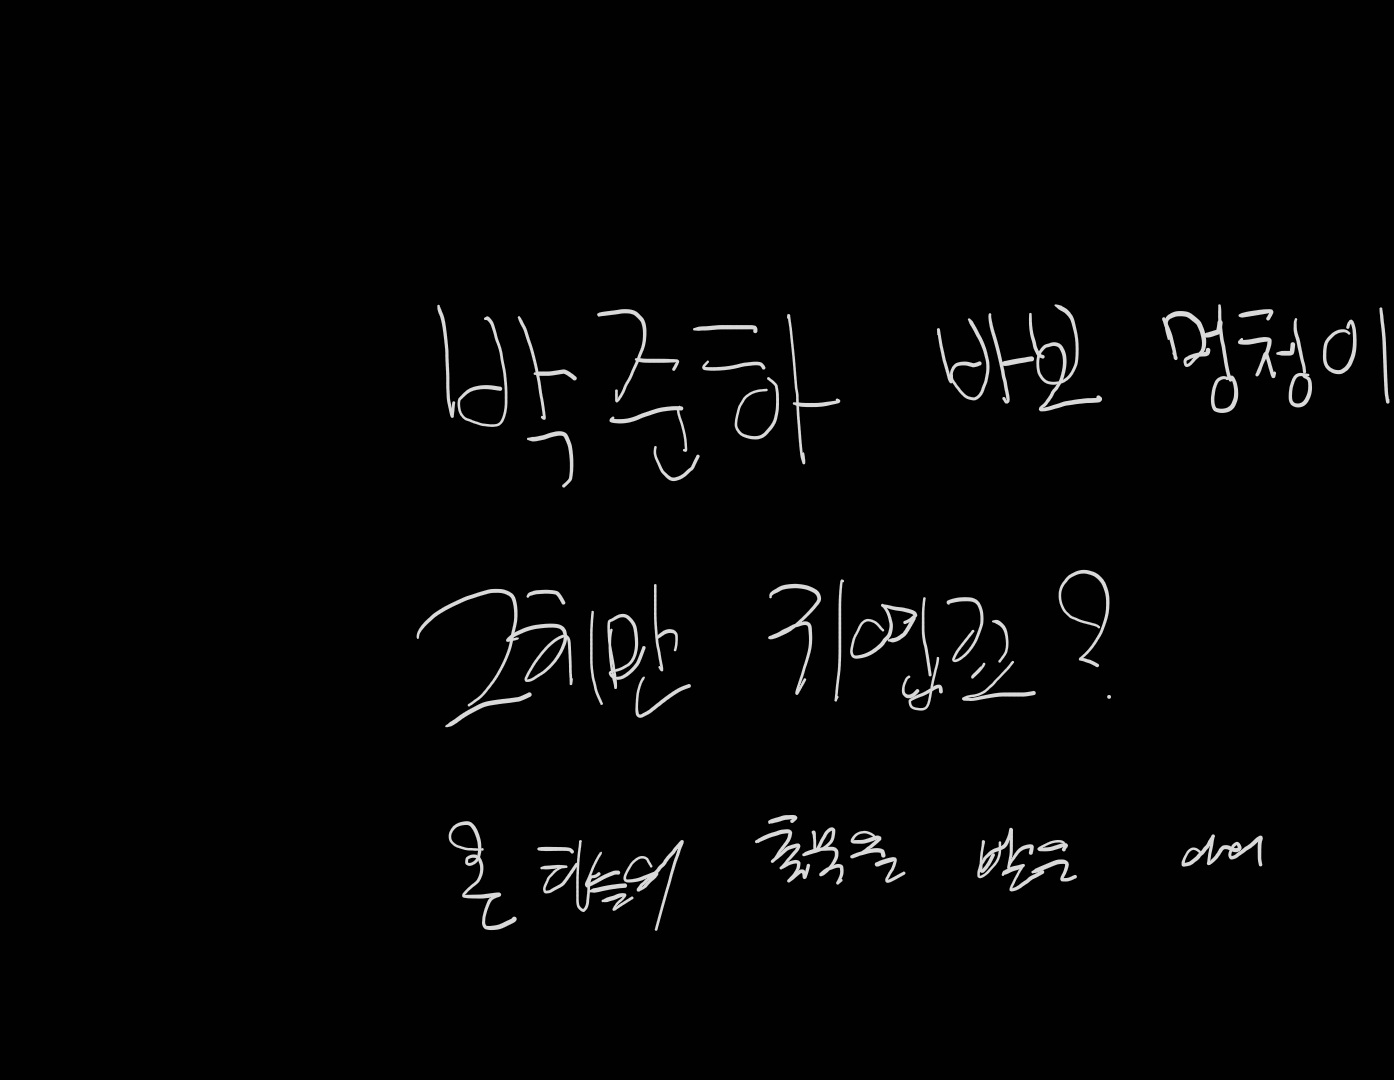 박준하 바보 멍청이
그치만 귀엽죠?
온 하늘의 축복을 받은 아이